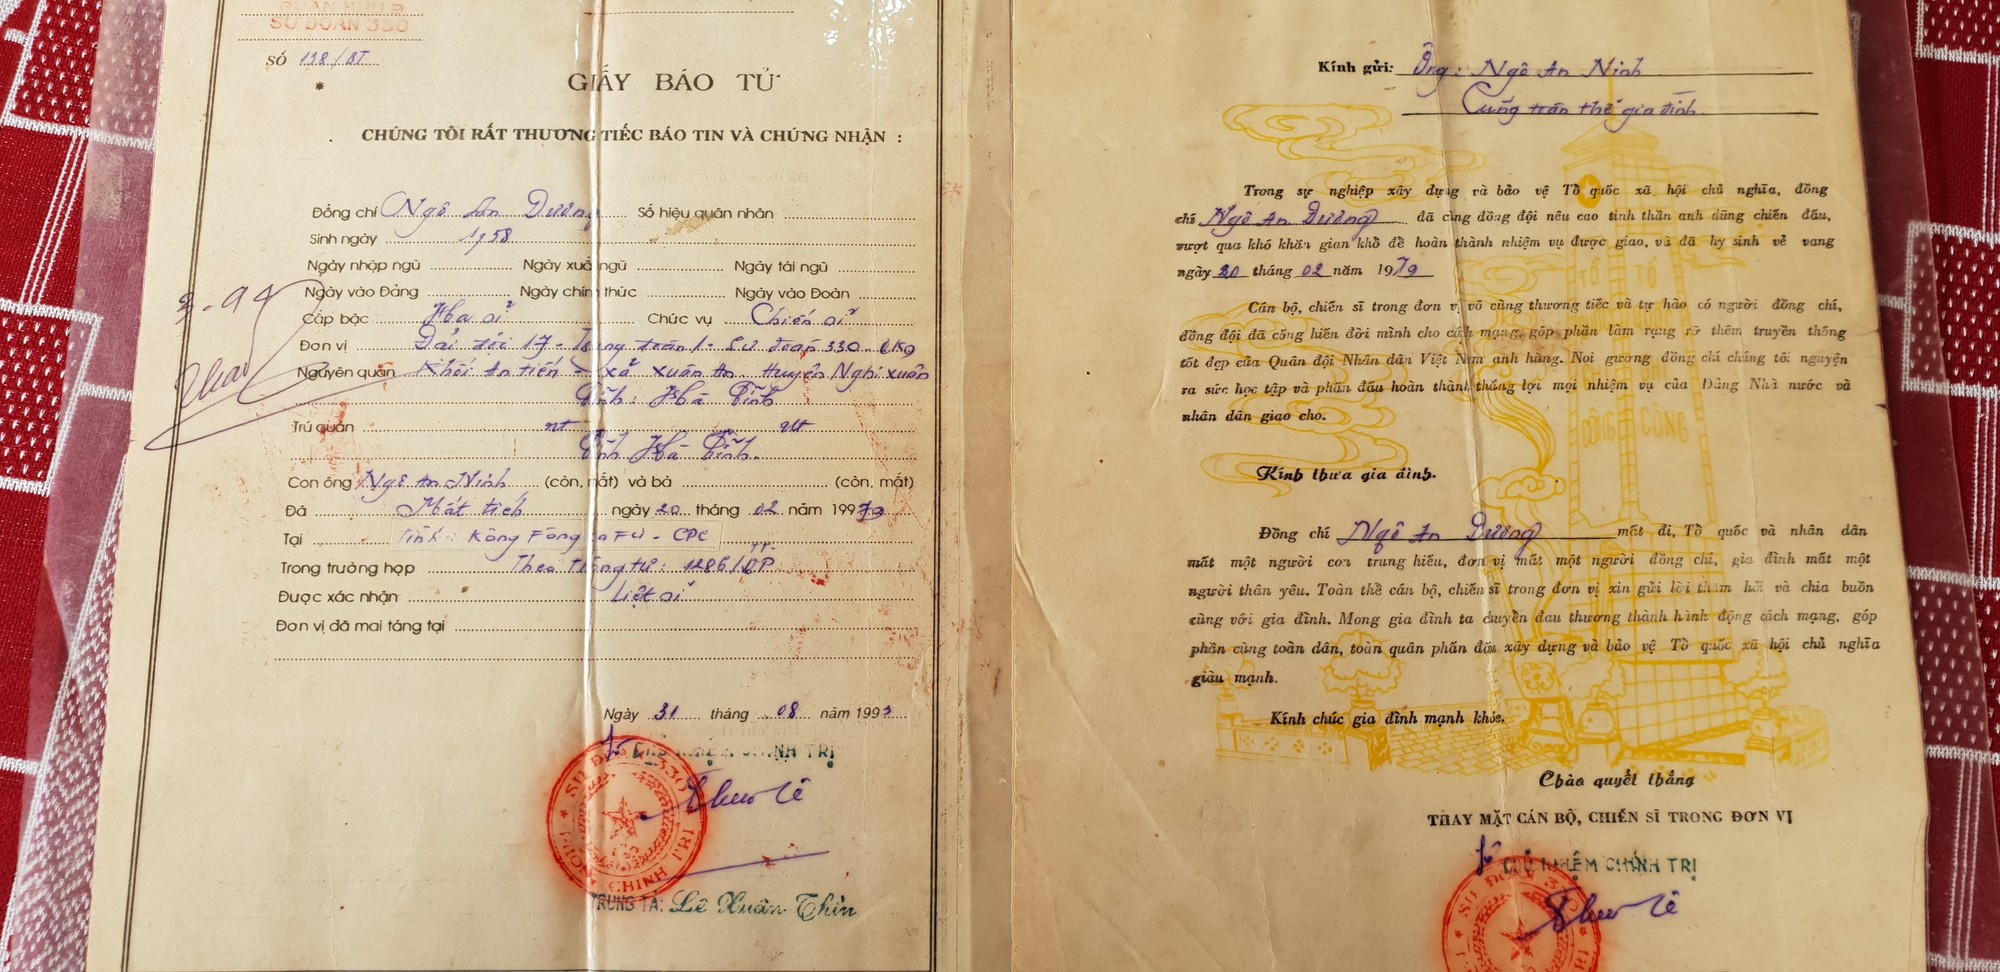 QUÂN KHU 9
SƯ ĐOÀN 330
SỐ 138/BT
*
GIẤY BÁO TỬ
CHÚNG TÔI RẤT THƯƠNG TIẾC BÁO TIN VÀ CHỨNG NHẬN :
Đồng chí Ngô An Dương Số hiệu quân nhân
Sinh ngày 1958
Ngày nhập ngũ Ngày xuất ngũ Ngày tái ngũ
Ngày vào Đảng Ngày chính thức Ngày vào Đoàn
Cấp bậc Hạ sĩ Chức vụ Chiến sĩ
Đơn vị Đại đội 17 - Trung đoàn 1 - Sư đoàn 330 - QK9
Nguyên quán Khối An tiến - xã Xuân An Huyện Nghi Xuân
Tỉnh: Hà Tĩnh
Trú quán nt nt
Tỉnh Hà Tĩnh.
Con ông Ngô An Ninh (còn, mất) và bà (còn, mất)
Đã Mất tích ngày 20 tháng 02 năm 1979
Tại Tỉnh: Kông Fông - CPC
Trong trường hợp Theo Thông tư: 1286/TT-QP
Được xác nhận Liệt sĩ
Đơn vị đã mai táng tại
Ngày 31 tháng 08 năm 1993
CHỦ NHIỆM CHÍNH TRỊ
SƯ ĐOÀN 330
CHÍNH TRỊ
TRUNG TÁ: Lê Xuân Thìn
Kính gửi: Ông: Ngô An Ninh
Cùng toàn thể gia đình
Trong sự nghiệp xây dựng và bảo vệ Tổ quốc xã hội chủ nghĩa, đồng
chí Ngô An Dương đã cùng đồng đội nêu cao tinh thần anh dũng chiến đấu,
vượt qua khó khăn gian khổ để hoàn thành nhiệm vụ được giao, và đã hy sinh vẻ vang
ngày 20 tháng 02 năm 1979
Cán bộ, chiến sĩ trong đơn vị vô cùng thương tiếc và tự hào có người đồng chí,
đồng đội đã cống hiến đời mình cho cách mạng, góp phần làm rạng rỡ thêm truyền thống
tốt đẹp của Quân đội Nhân dân Việt Nam anh hùng. Noi gương đồng chí chúng tôi nguyện
ra sức học tập và phấn đấu hoàn thành thắng lợi mọi nhiệm vụ của Đảng Nhà nước và
nhân dân giao cho.
Kính thưa gia đình.
Đồng chí Ngô An Dương mất đi, Tổ quốc và nhân dân
mất một người con trung hiếu, đơn vị mất một người đồng chí, gia đình mất một
người thân yêu. Toàn thể cán bộ, chiến sĩ trong đơn vị xin gửi lời thăm hỏi và chia buồn
cùng với gia đình. Mong gia đình ta chuyển đau thương thành hành động cách mạng, góp
phần cùng toàn dân, toàn quân phấn đấu xây dựng và bảo vệ Tổ quốc xã hội chủ nghĩa
giàu mạnh.
Kính chúc gia đình mạnh khỏe.
Chào quyết thắng
THAY MẶT CÁN BỘ, CHIẾN SĨ TRONG ĐƠN VỊ
CHỦ NHIỆM CHÍNH TRỊ